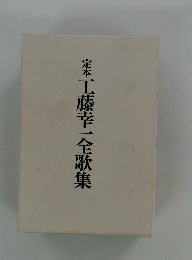 定本
工藤幸一全歌集